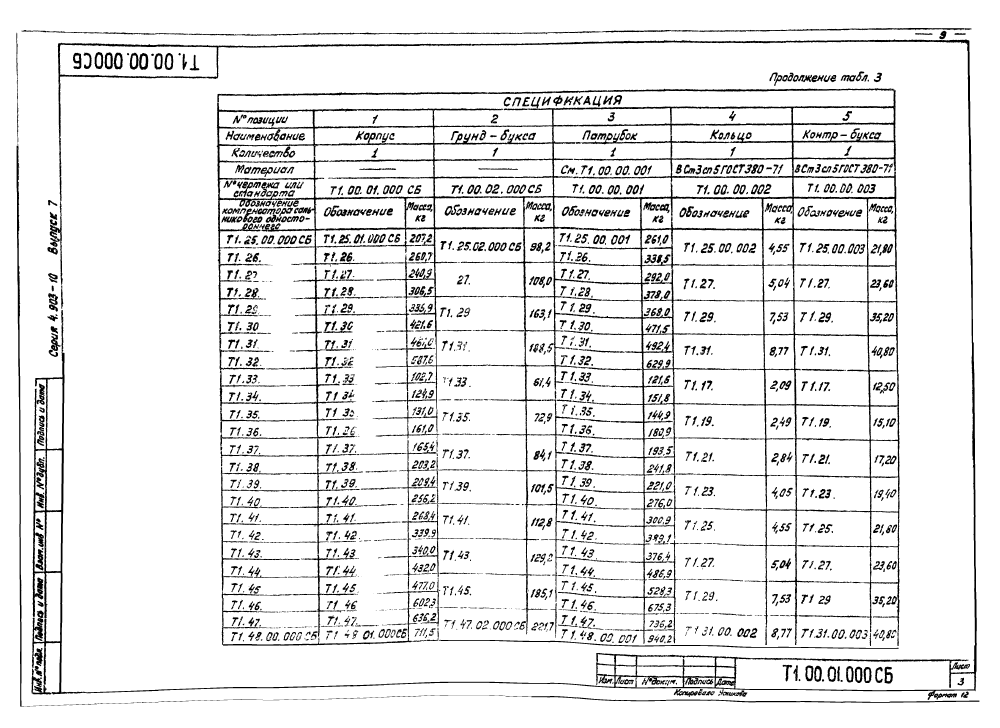 9
Т1.00.00.000СБ
Продолжение табл. 3
СПЕЦИФИКАЦИЯ
№ позиции 1 2 3 4 5
Наименование Корпус Грунд – букса Патрубок Кольцо Контр – букса
Количество 1 1 1 1 1
Материал —— —— См. Т1.00.00.001 ВСт3сп5 ГОСТ 380-71 ВСт3сп5 ГОСТ 380-71
№ чертежа или стандарта Т1.00.01.000 СБ Т1.00.02.000 СБ Т1.00.00.001 Т1.00.00.002 Т1.00.00.003
Обозначение компенсатора сальникового одностороннего Обозначение Масса, кг Обозначение Масса, кг Обозначение Масса, кг Обозначение Масса, кг Обозначение Масса, кг
Т1.25.00.000 СБ Т1.25.01.000 СБ 207,2 Т1.25.02.000 СБ 98,2 Т1.25.00.001 261,0 Т1.25.00.002 4,55 Т1.25.00.003 21,80
Т1.26. Т1.26. 260,7 Т1.26. 338,5
Т1.27 Т1.27. 240,9 27. 108,0 Т1.27. 292,0 Т1.27. 5,04 Т1.27. 23,60
Т1.28. Т1.28. 306,5 Т1.28. 378,0
Т1.29 Т1.29. 335,9 Т1.29 163,1 Т1.29. 368,0 Т1.29. 7,53 Т1.29. 35,20
Т1.30 Т1.30 421,6 Т1.30. 471,5
Т1.31. Т1.31 Т1.31. 188,5 Т1.31. 492,4 Т1.31. 8,77 Т1.31. 40,80
Т1.32. Т1.32 587,6 Т1.32. 629,9
Т1.33. Т1.33 102,7 Т1.33. 61,4 Т1.33. 121,6 Т1.17. 2,09 Т1.17. 12,50
Т1.34. Т1 34 124,9 Т1.34. 151,8
Т1.35. Т1 35 131,0 Т1.35. 72,9 Т1.35. 144,9 Т1.19. 2,49 Т1.19. 15,10
Т1.36. 161,0 Т1.36. 180,9
Т1.37. Т1.37. 165,4 Т1.37. 84,1 Т1.37. 193,5 Т1.21. 2,84 Т1.21. 17,20
Т1.38. Т1.38. 203,2 Т1.38. 241,8
Т1.39. Т1.39. 208,4 Т1.39. 101,5 Т1.39. 221,0 Т1.23. 4,05 Т1.23. 19,40
Т1.40. Т1.40. 256,2 Т1.40. 276,0
Т1.41. Т1.41. 268,4 Т1.41. 112,8 Т1.41. 300,9 Т1.25. 4,55 Т1.25. 21,80
Т1.42. Т1.42 339,9 Т1.42. 389,1
Т1.43. Т1.43 340,0 Т1.43. 129,2 Т1.43 376,4 Т1.27. 5,04 Т1.27. 23,60
Т1.44. Т1.44. 432,0 Т1.44. 486,9
Т1.45 Т1.45. 477,0 Т1.45. 185,1 Т1.45. 528,3 Т1.29. 7,53 Т1 29 35,20
Т1.46. Т1 46 602,3 Т1.46. 675,3
Т1.47. Т1.47. 636,2 Т1.47.02.000 СБ 221,7 Т1.47. 736,2 Т1 31.00.002 8,77 Т1.31.00.003 40,80
Т1.48.00.000 СБ Т1 48 01.000СБ 711,5 Т1.48.00.001 940,2
Серия 4.903-10 Выпуск 7
Инв. № подл. Подпись и дата Взам. инв № Инв. № дубл. Подпись и дата
Изм. Лист № докум. Подпись Дата
Т1.00.01.000СБ
Лист
3
Копировал
Формат 12